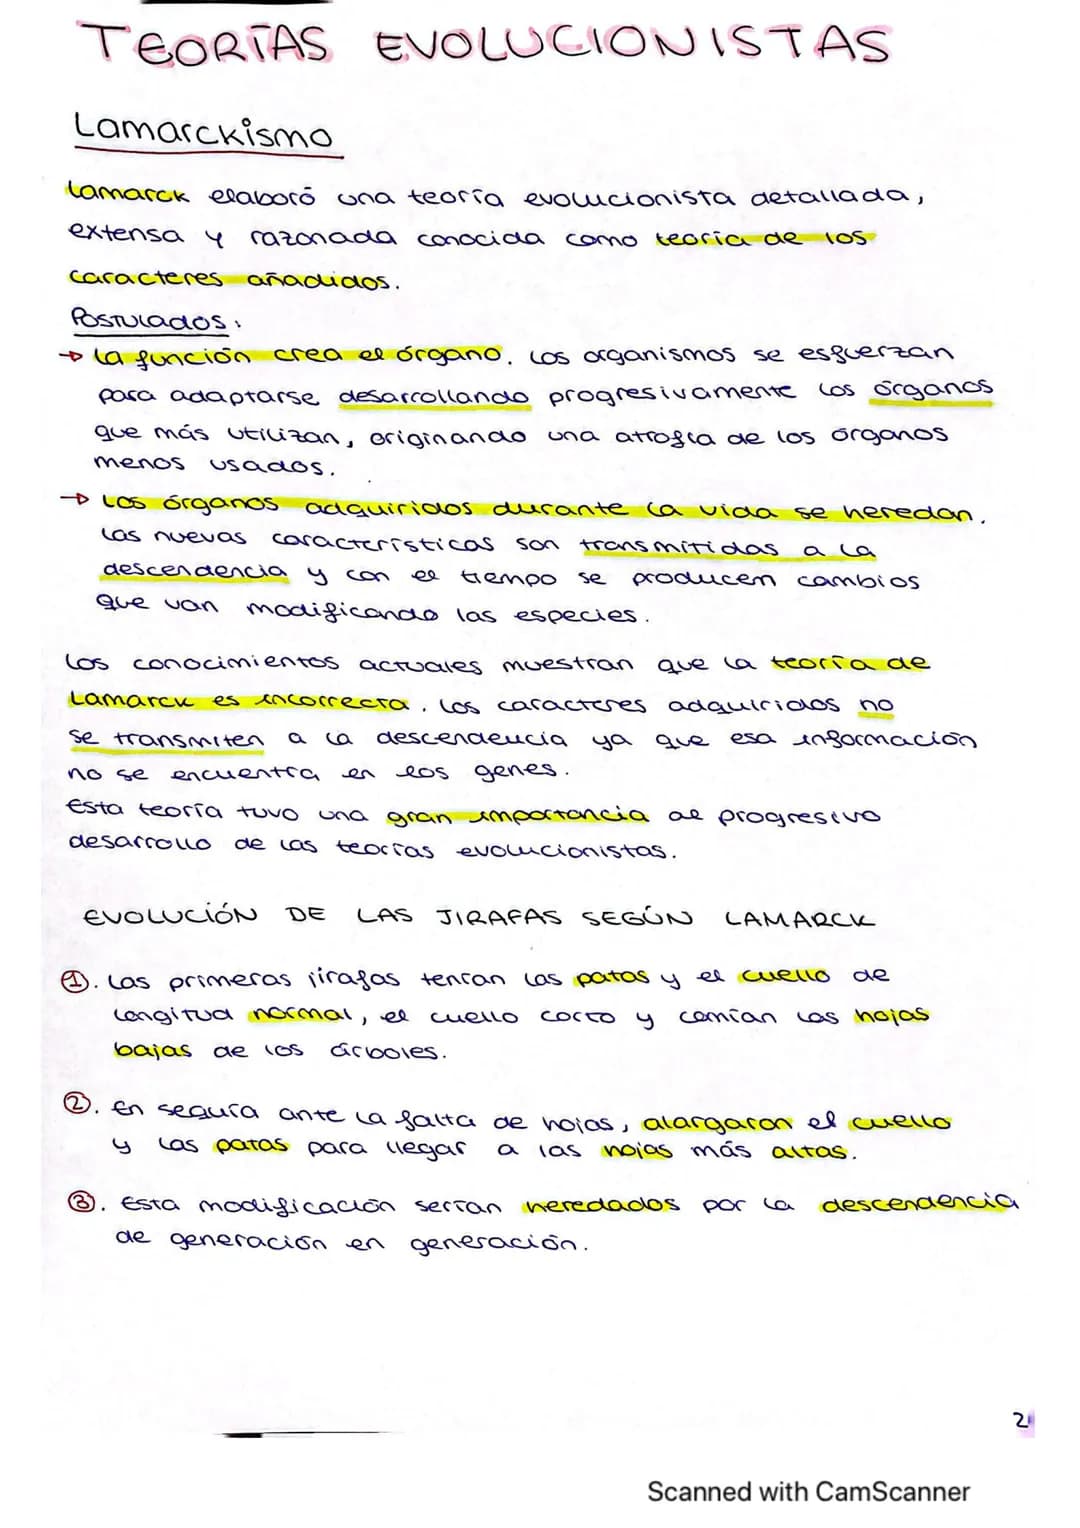 TEORÍAS EVOLUCIONISTAS
Lamarckismo
Lamarck elaboró una teoría evolucionista detallada,
extensa y razonada conocida como teoría de los
caracteres añadidos.
Postulados:
→ La función crea el órgano. Los organismos se esfuerzan
para adaptarse desarrollando progresivamente los órganos
que más utilizan, originando una atrofia de los órganos
menos usados.
→ Los órganos adquiridos durante la vida se heredan.
Las nuevas características son transmitidas a la
descendencia y con el tiempo se producen cambios
que van modificando las especies.
Los conocimientos actuales muestran que la teoría de
Lamarck es incorrecta. Los caracteres adquiridos no
se transmiten a la descendencia ya que esa información
no se encuentra en los genes.
Esta teoría tuvo una gran importancia al progresivo
desarrollo de las teorías evolucionistas.
EVOLUCIÓN DE LAS JIRAFAS SEGÚN LAMARCK
①. Las primeras jirafas tenían las patas y el cuello de
longitud normal, el cuello corto y comían las hojas
bajas de los árboles.
②. En sequía ante la falta de hojas, alargaron el cuello
y las patas para llegar a las hojas más altas.
③. Esta modificación serían heredados por la descendencia
de generación en generación.
2
Scanned with CamScanner